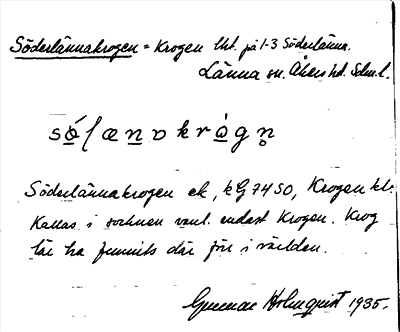 Söderlännakrogen = Krogen lht. på 1-3 Söderlänna.
Länna sn. Åkers hd. Sdm. l.
sǫ́ʃænɒkrǫ́gn̥
Söderlännakrogen ek, kG 7450, Krogen kl.
Kallas i socknen vanl. endast Krogen. Krog
lär ha funnits där förr i världen.
Gunnar Holmquist 1935.